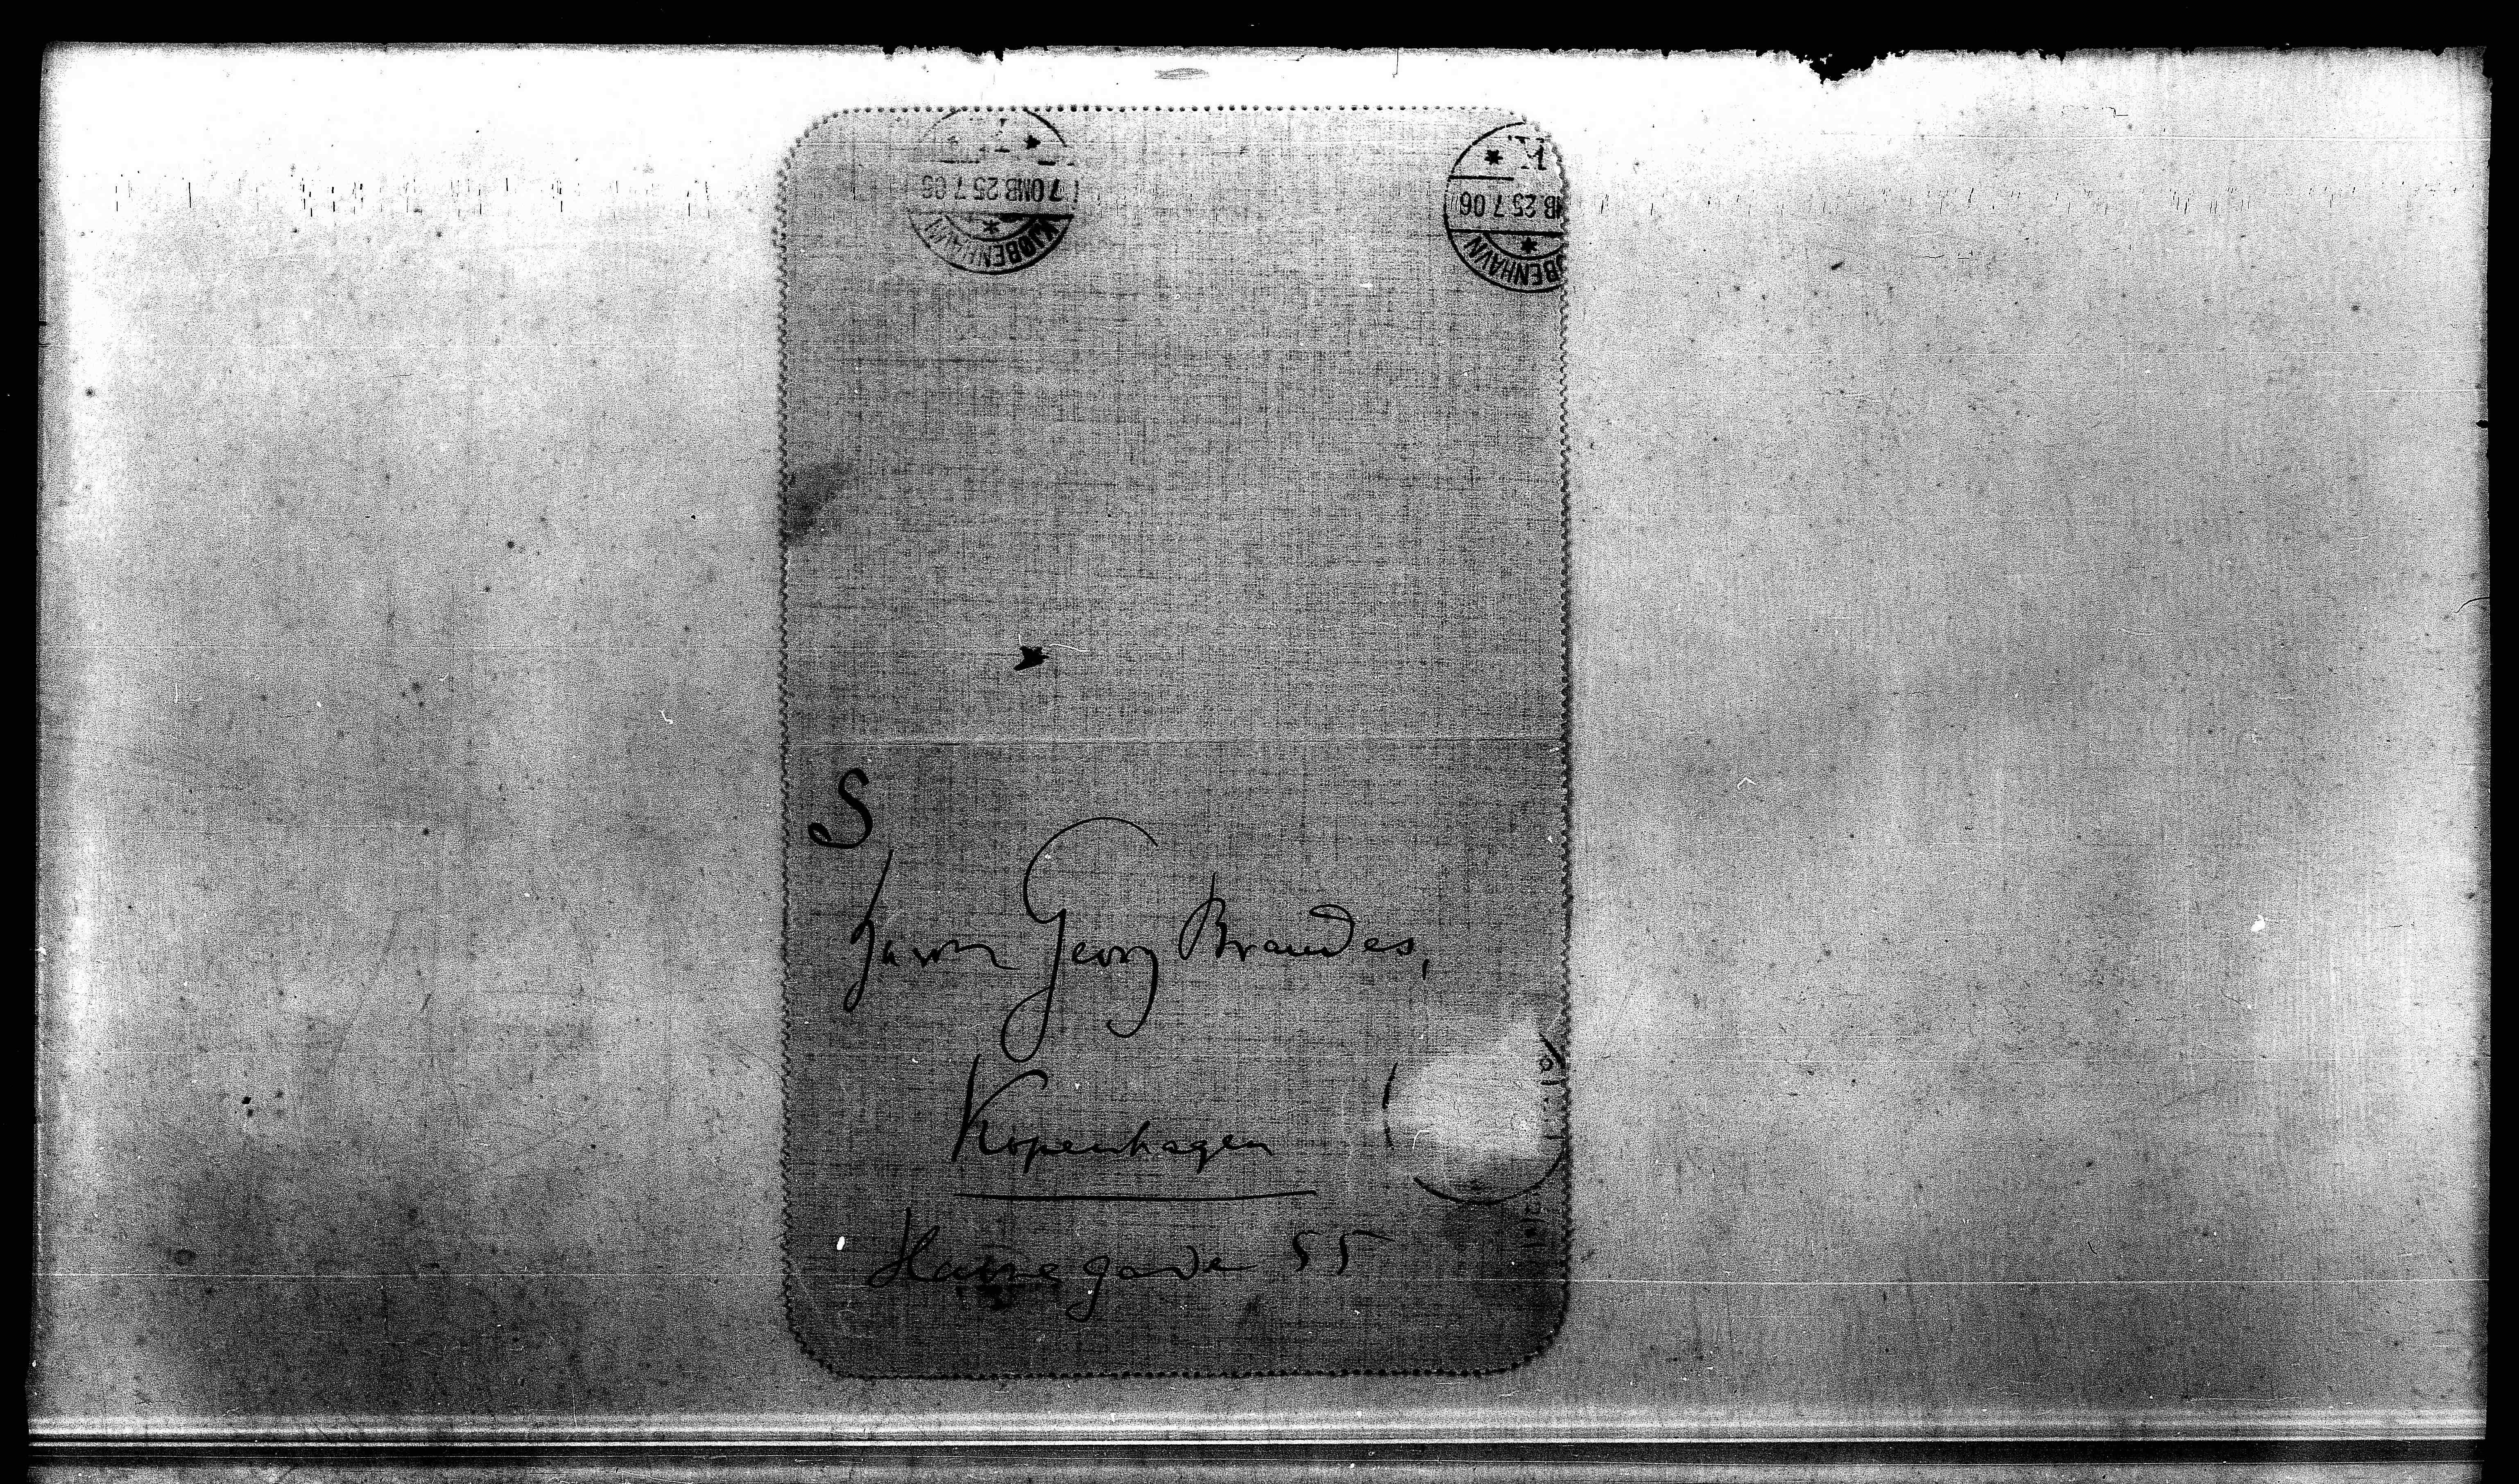 KJØBENHAVN
7 OMB 25 7 06
KJØBENHAVN
MB 25 7 06
S
Herrn Georg Brandes,
Kopenhagen
Havnegade 55